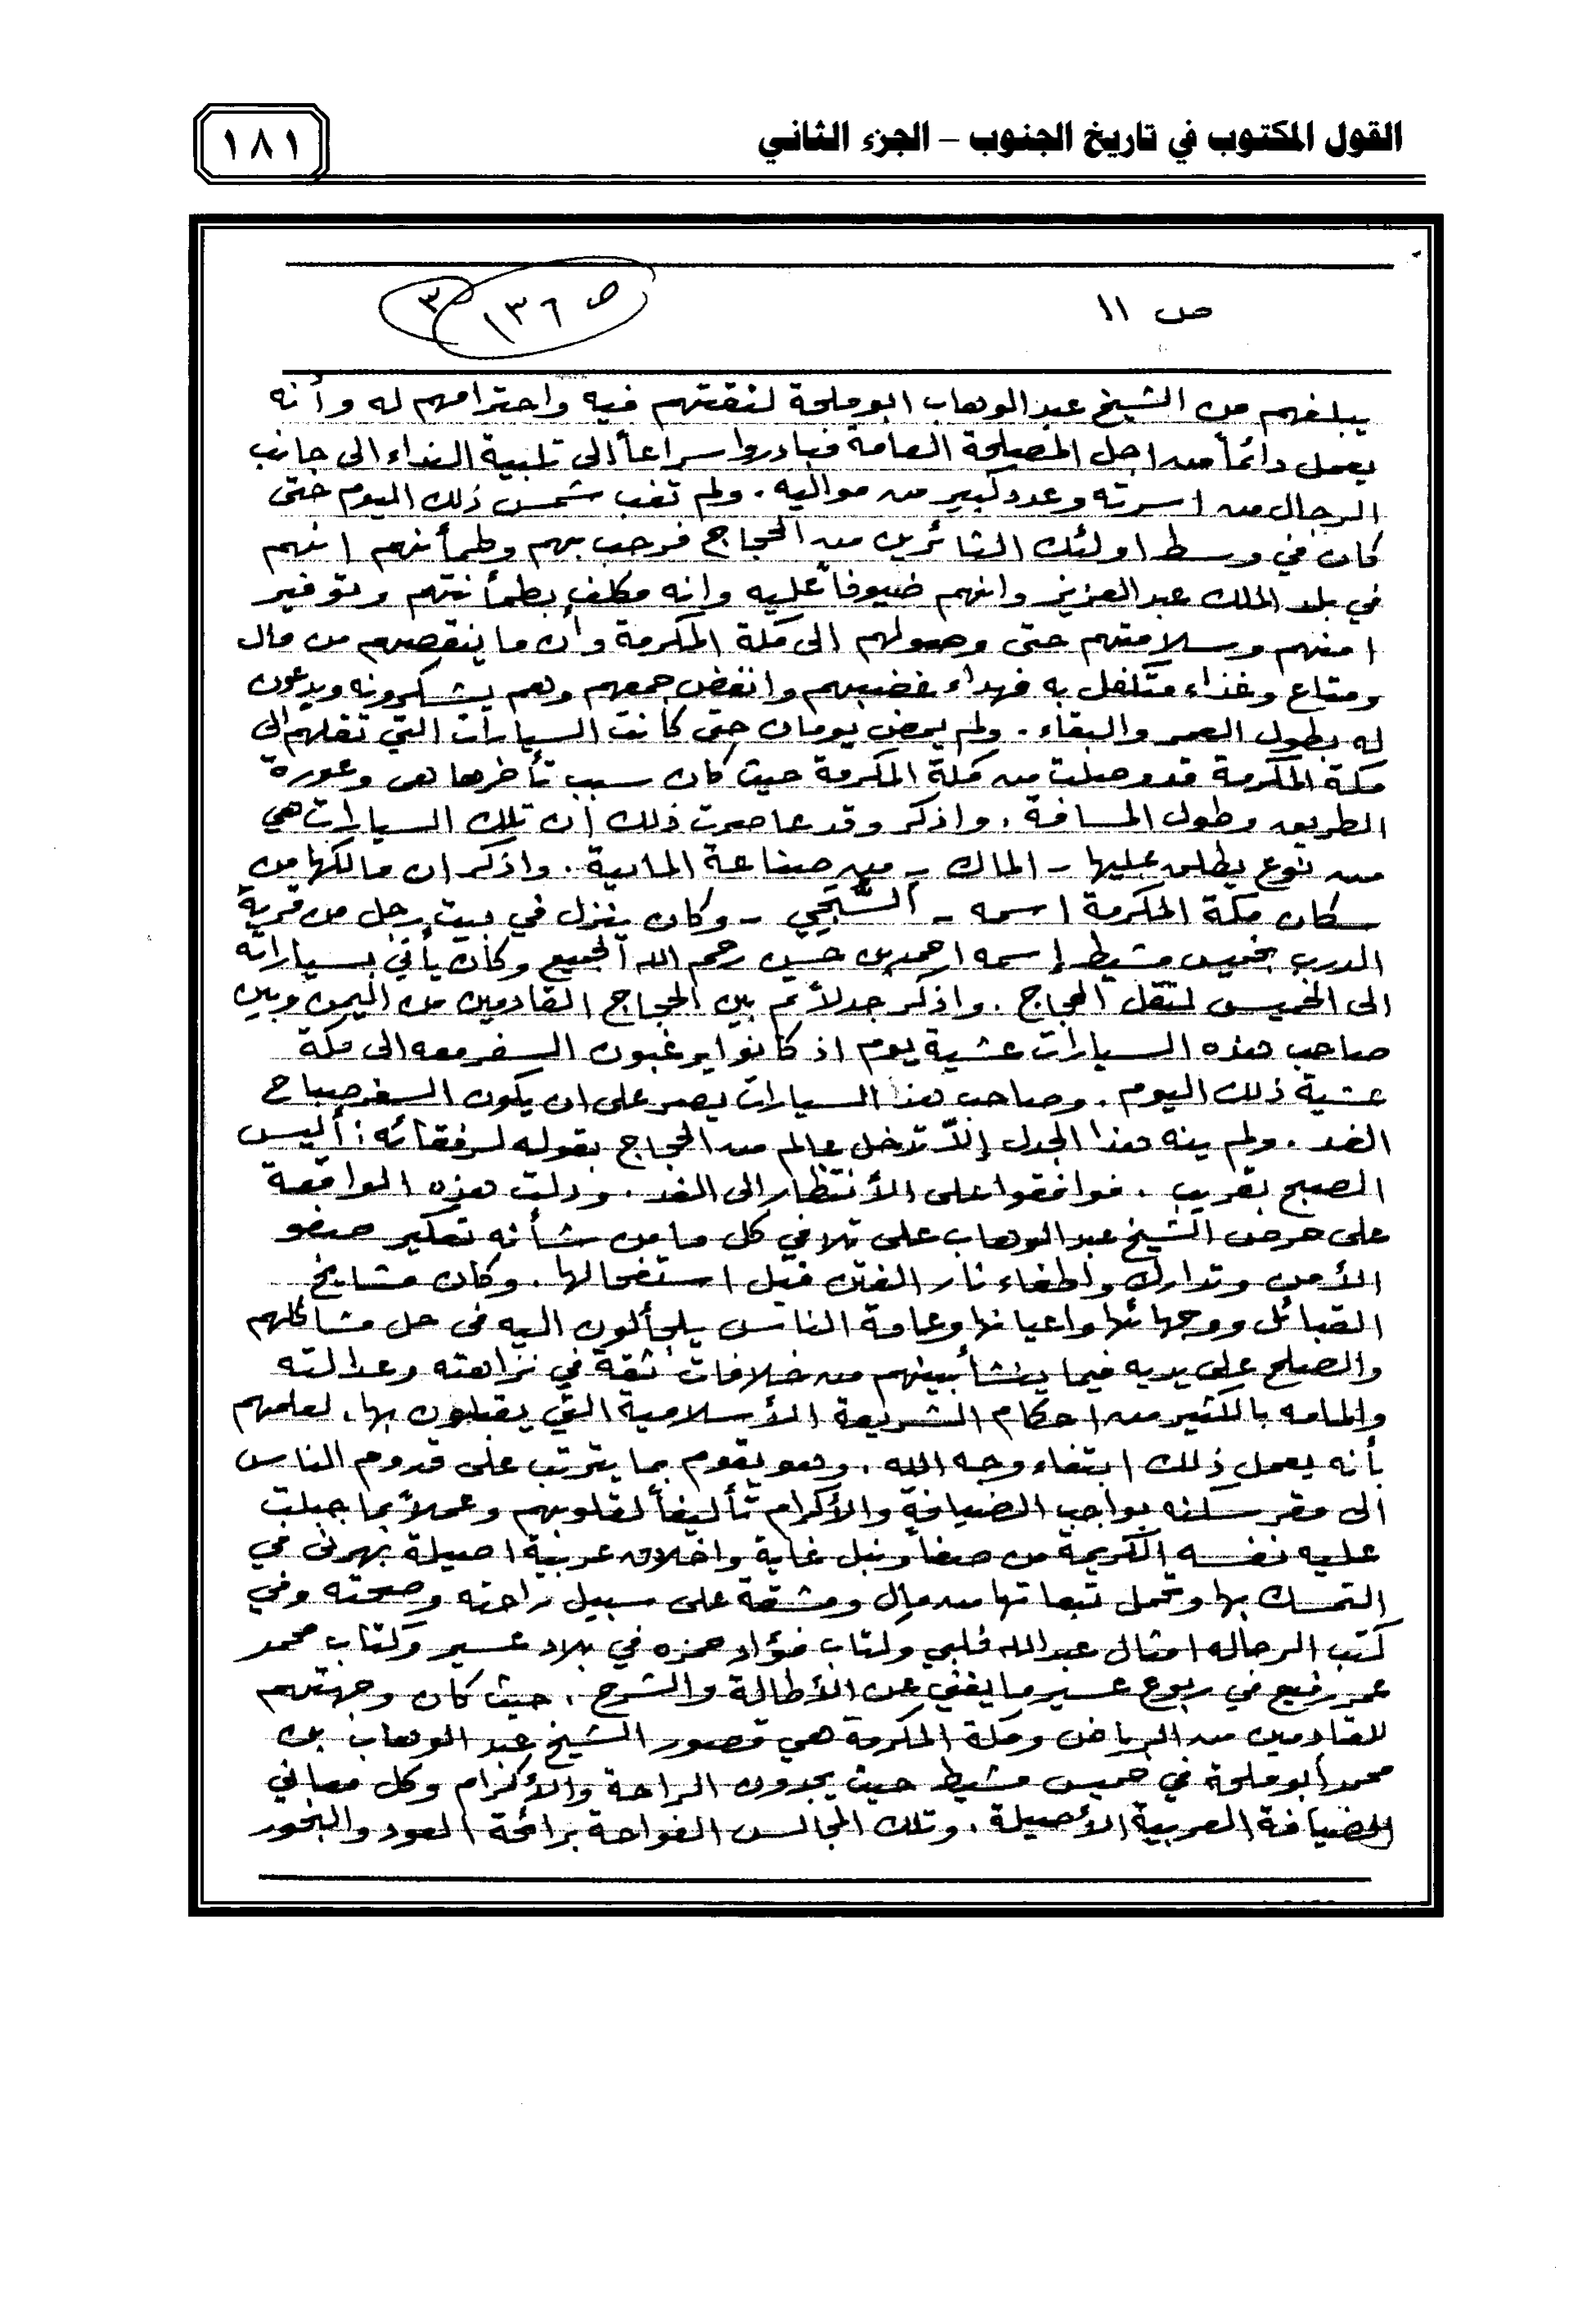 القول المكتوب في تاريخ الجنوب – الجزء الثاني
١٨١
ص ١١
ص ١٣٦
٣
يبلغهم من الشيخ عبدالوهاب ابوملحة لثقتهم فيه واحترامهم له وأنه
يعمل دائماً من اجل المصلحة العامة فبادروا سراعاً الى تلبية النداء الى جانب
الرجال من اسرته وعدد كبير من مواليه. ولم تغب شمس ذلك اليوم حتى
كان في وسط اولئك الثائرين من الحجاج فرحب بهم وطمأنهم انهم
في بلد الملك عبدالعزيز وانهم ضيوفاً عليه وانه مكلف بطمأنتهم وتوفير
امنهم وسلامتهم حتى وصولهم الى مكة المكرمة وأن ما ينقصهم من مال
ومتاع وغذاء متكفل به فهداء غضبهم وانفض جمعهم وهم يشكرونه ويدعون
له بطول العمر والبقاء. ولم يمض يومان حتى كانت السيارات التي تقلهم الى
مكة المكرمة قد وصلت من مكة المكرمة حيث كان سبب تأخرها هي وعورة
الطريق وطول المسافة. واذكر وقد عاصرت ذلك أن تلك السيارات هي
من نوع يطلق عليها - الماك - من صناعة المانية. واذكر ان مالكها من
سكان مكة المكرمة اسمه - - وكان ينزل في بيت رجل من قرية
الدرب بخميس مشيط إسمه احمد بن حسين رحم الله الجميع وكان يأتي بسياراته
الى الخميس لنقل الحجاج. واذكر جدلاً تم بين الحجاج القادمين من اليمن وبين
صاحب هذه السيارات عشية يوم اذ كانوا يرغبون السفر معه الى مكة
عشية ذلك اليوم. وصاحب هذا السيارات يصر على ان يكون السفر صباح
الغد. ولم ينه هذا الجدل إلاّ تدخل عالم من الحجاج بقوله لرفقائه: أليس
الصبح بقريب. فوافقوا على الأنتظار الى الغد. ودلت هذه الواقعة
على حرص الشيخ عبدالوهاب على تلافي كل ما من شأنه تعكير صفو
الأمن وتدارك وأطفاء نار الفتن قبل استفحالها. وكان مشايخ
القبائل ووجهائها واعيانها وعامة الناس يلجألون اليه في حل مشاكلهم
والصلح على يديه فيما ينشأ بينهم من خلافات ثقة في نزاهته وعدالته
والمامه بالكثير من احكام الشريعة الأسلامية التي يقبلون بها. لعلمهم
بأنه يعمل ذلك ابتغاء وجه الله. وهو يقوم بما يترتب على قدوم الناس
الى مقر سكنه بواجب الضيافة والأكرام تأليفاً لقلوبهم وعملاً بما جبلت
عليه نفسه الكريمة من صفاء ونبل غاية واخلاق عربية اصيلة في
التمسك بها وتحمل تبعاتها من مال ومشقة على سبيل راحته وصحته وفي
كتب الرحاله امثال عبدالله فلبي وكتاب فؤاد حمزه في بلاد عسير وكتاب محمد
عمر رفيع في ربوع عسير ما يغني عن الأطالة والشرح. حيث كان وجهتهم
للقادمين من الرياض ومكة المكرمة هي قصور الشيخ عبدالوهاب بن
محمد أبوملحة في خميس مشيط حيث يجدون الراحة والأكرام وكل معاني
الضيافة العربية الأصيلة. وتلك المجالس الفواحة برائحة العود والبخور